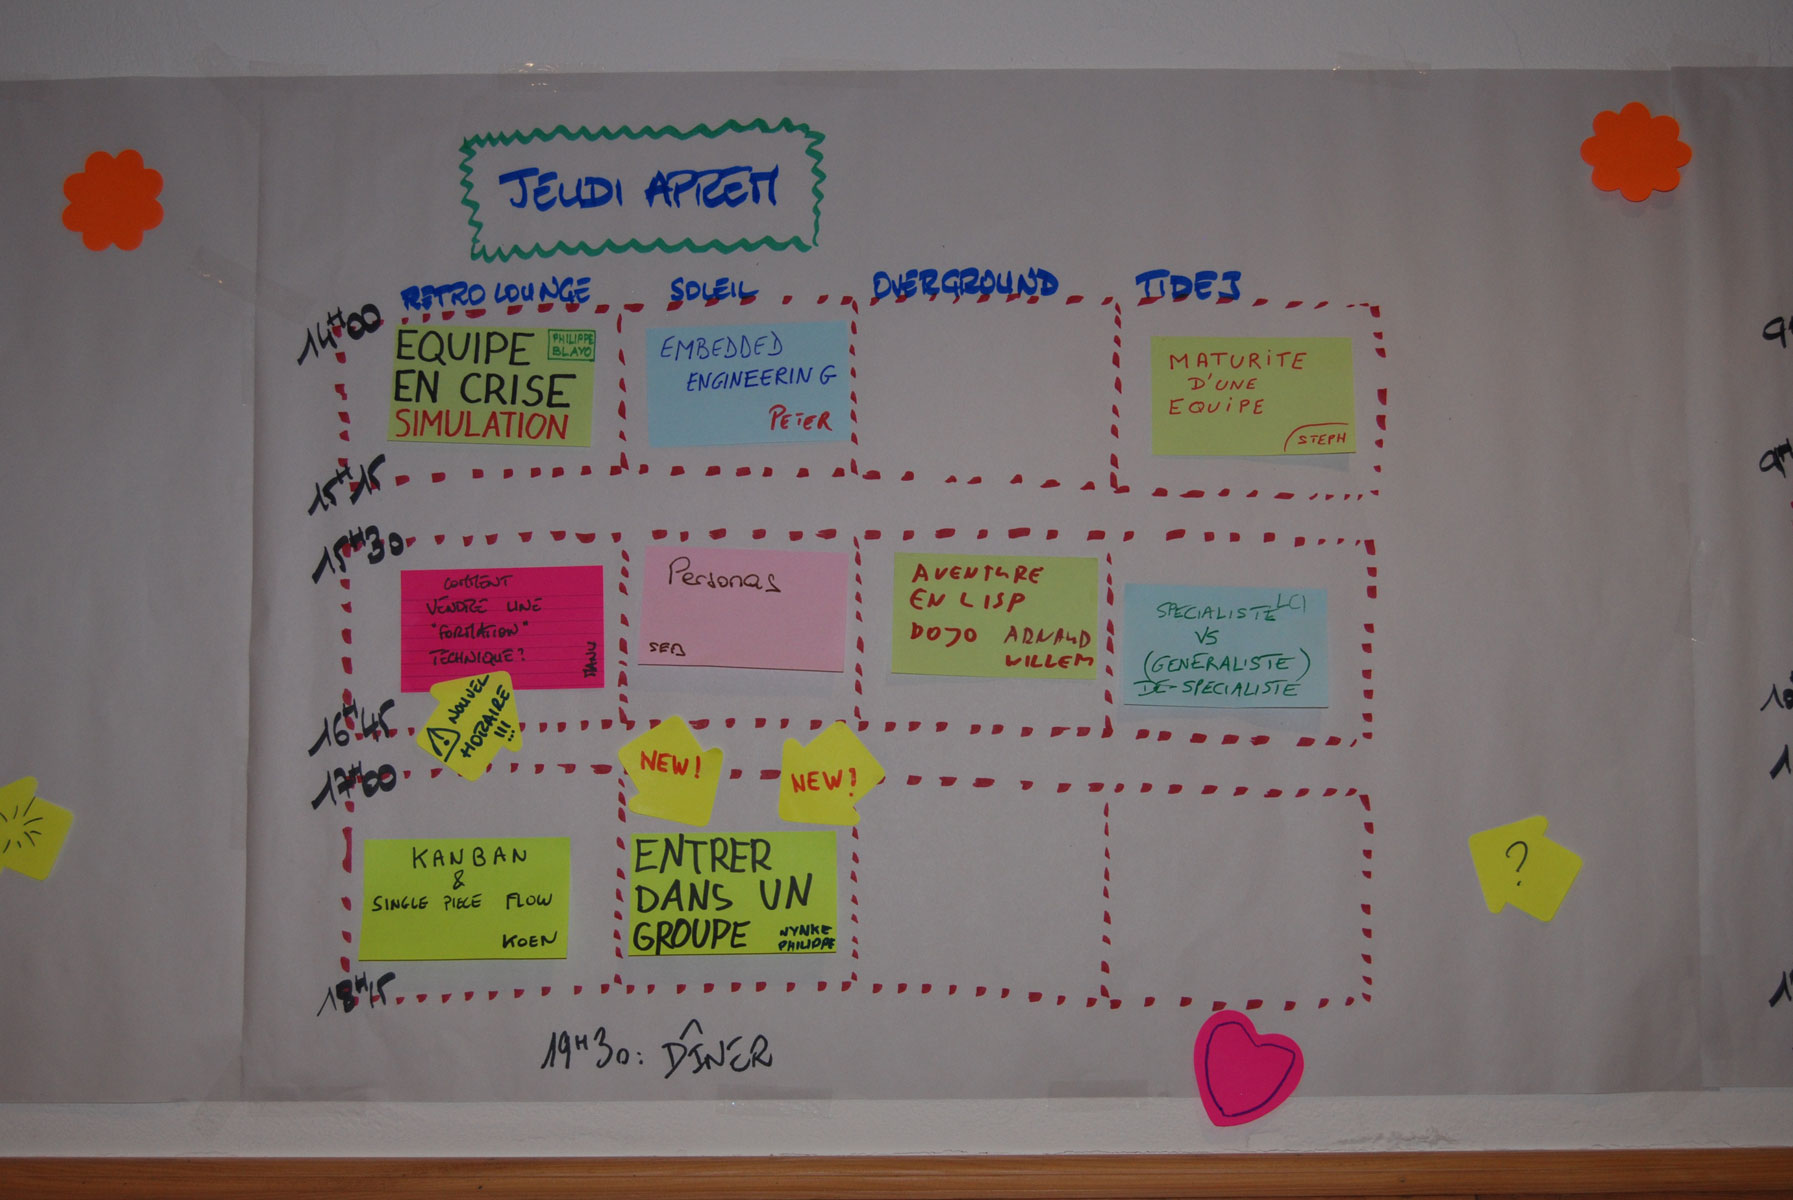 JEUDI APREM
RETRO LOUNGE
SOLEIL
OVERGROUND
14H00
EQUIPE
EN CRISE
SIMULATION
PHILIPPE
BLAYO
EMBEDDED
ENGINEERING
PETER
MATURITE
D'UNE
EQUIPE
STEPH
15H15
15H30
COMMENT
VENDRE UNE
"FORMATION"
TECHNIQUE?
MANU
Personas
SEB
AVENTURE
EN LISP
DOJO ARNAUD
WILLEM
SPECIALISTE
VS
(GENERALISTE)
DE-SPECIALISTE
16H45
NOUVEL
HORAIRE
!!!
NEW!
NEW!
17H00
KANBAN
&
SINGLE PIECE FLOW
KOEN
ENTRER
DANS UN
GROUPE
NYNKE
PHILIPPE
?
18H15
19H30: DÎNER